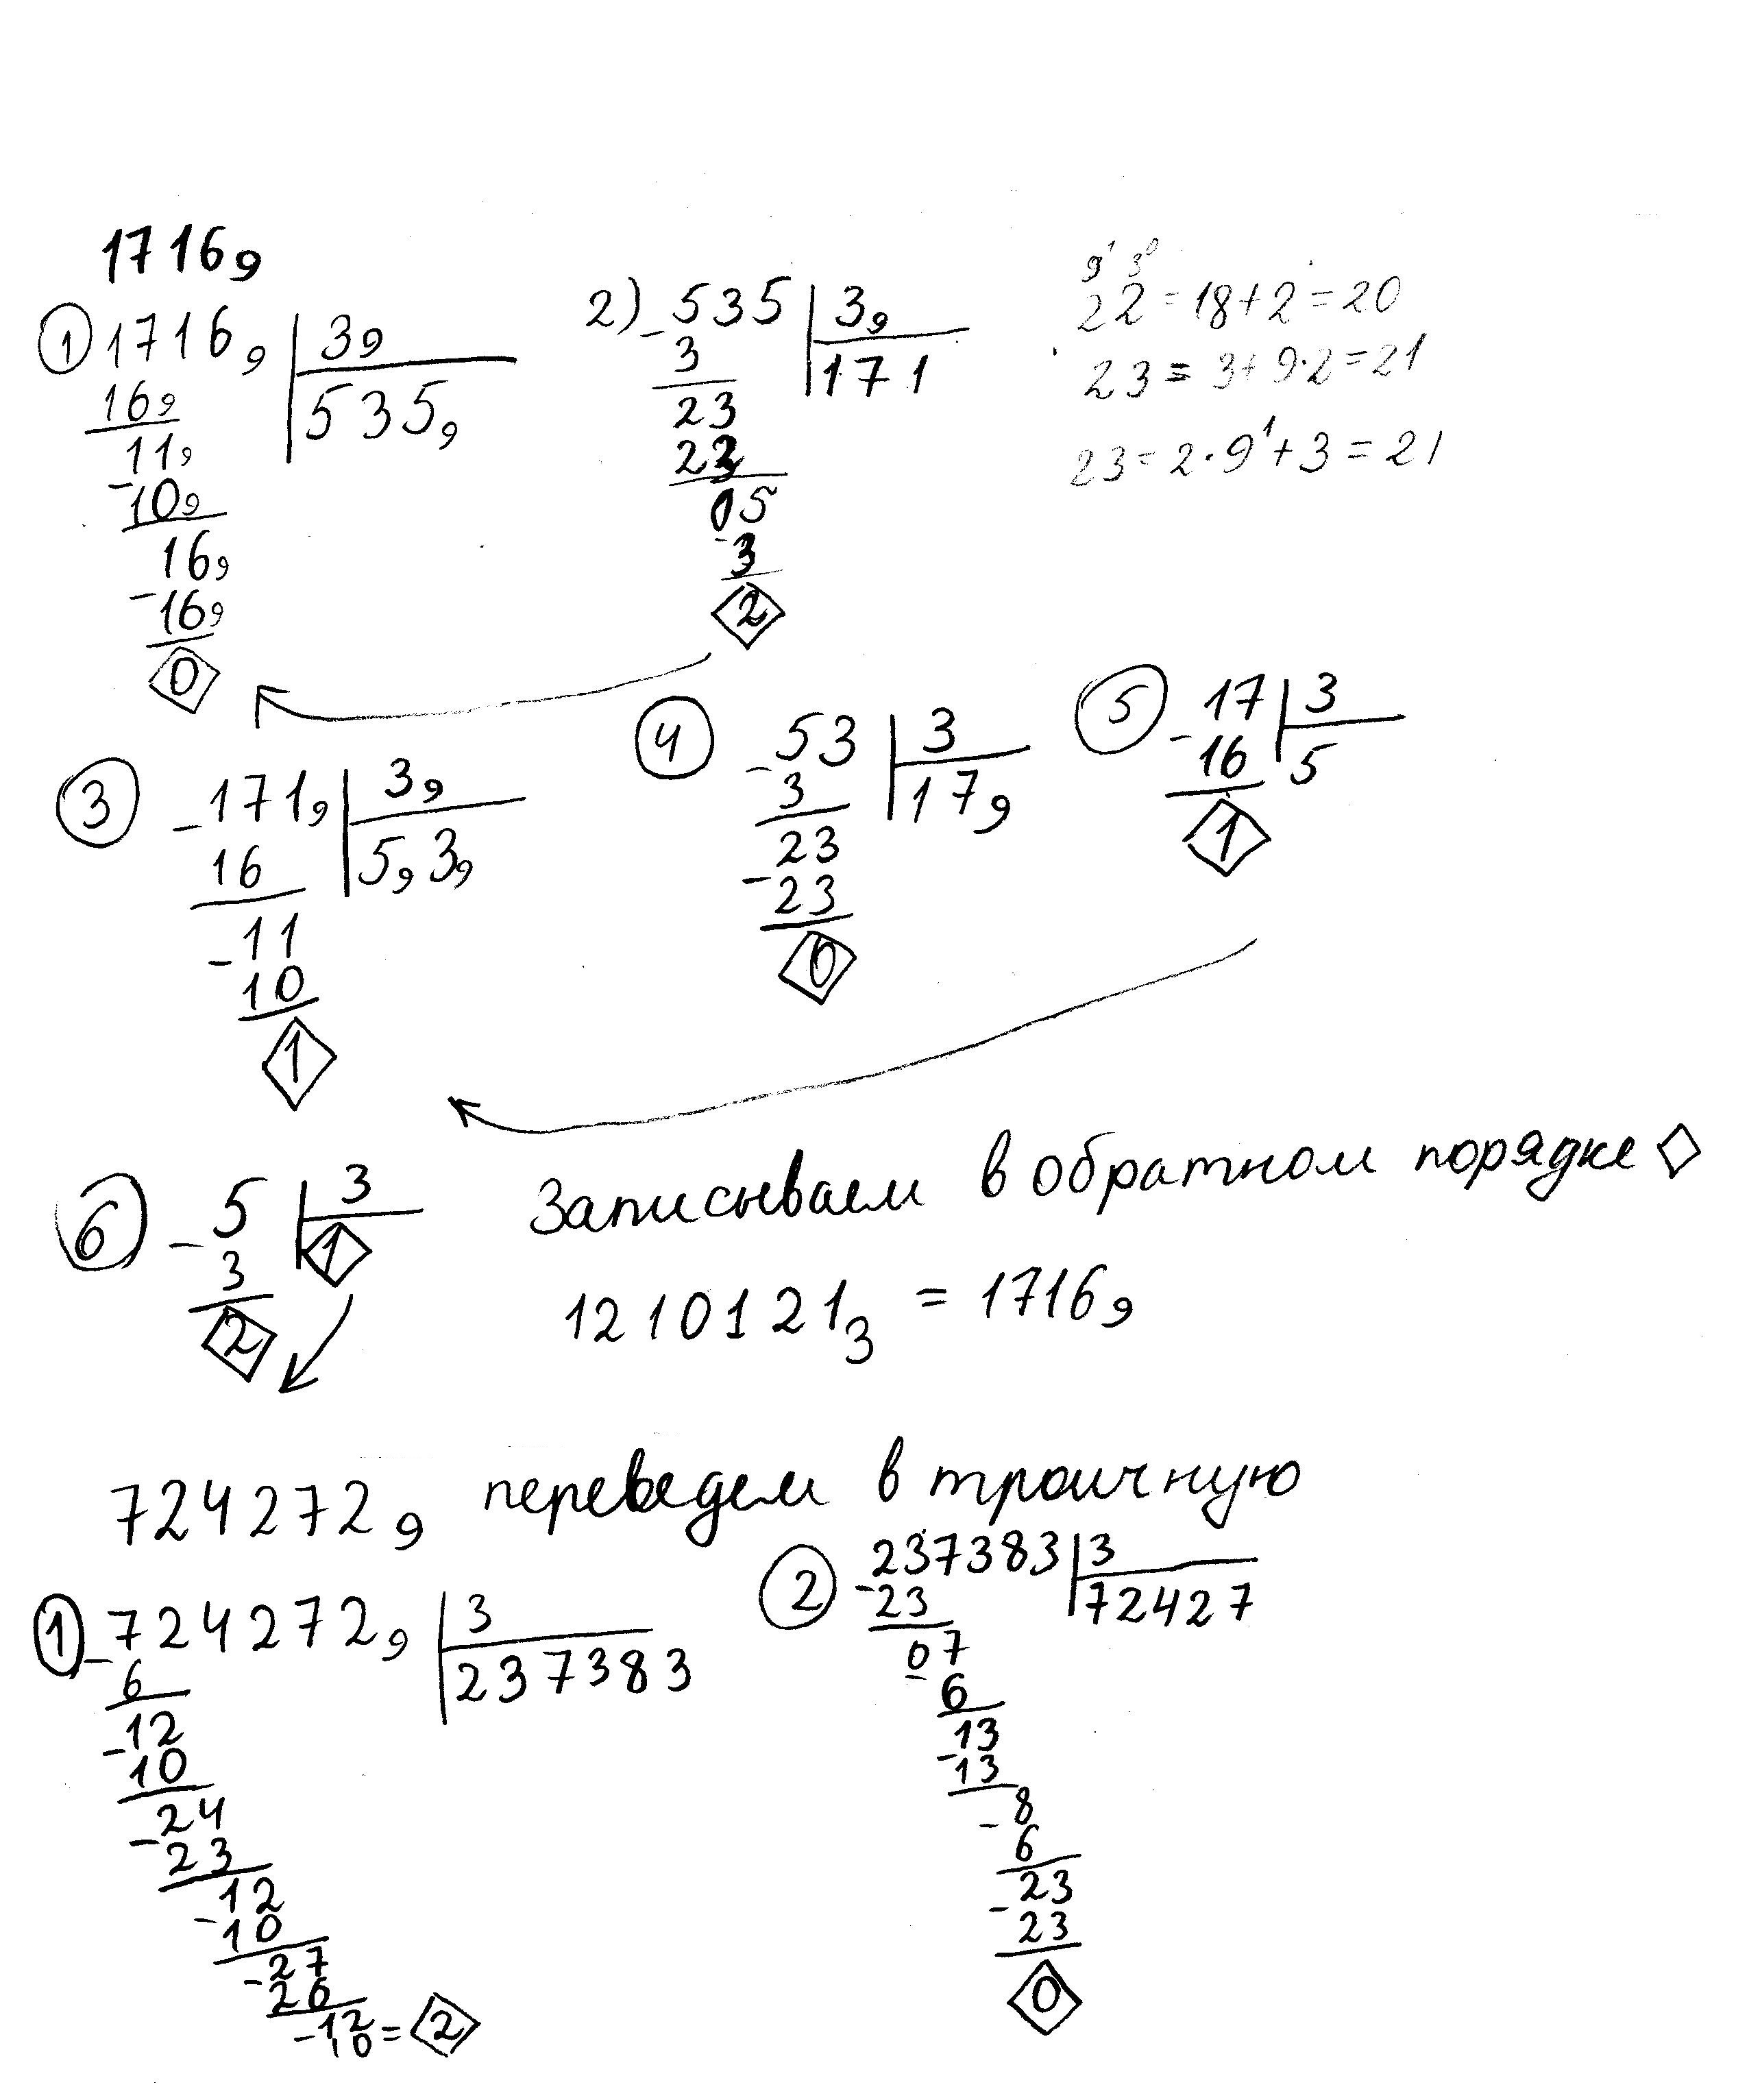 1716₉
① 1716₉ | 3₉
16₉ 535₉
11₉
-10₉
16₉
-16₉
0
2) -535 | 3₉
3 171
23
23
05
-3
2
9¹ 3⁰
22 = 18+2 = 20
23 = 3+9·2 = 21
23 = 2·9¹+3 = 21
③ -171₉ | 3₉
16 5₉3₉
-11
10
1
④ -53 | 3
3 17₉
23
-23
0
⑤ -17 | 3
16 5
1
⑥ -5 | 3
3 1
2
Записываем в обратном порядке ◇
1210121₃ = 1716₉
724272₉ переведем в троичную
① -724272₉ | 3
6 237383
-12
10
-24
23
-12
10
-27
26
-12
10 = 2
② -237383 | 3
23 72427
07
-6
13
-13
-8
6
-23
23
0